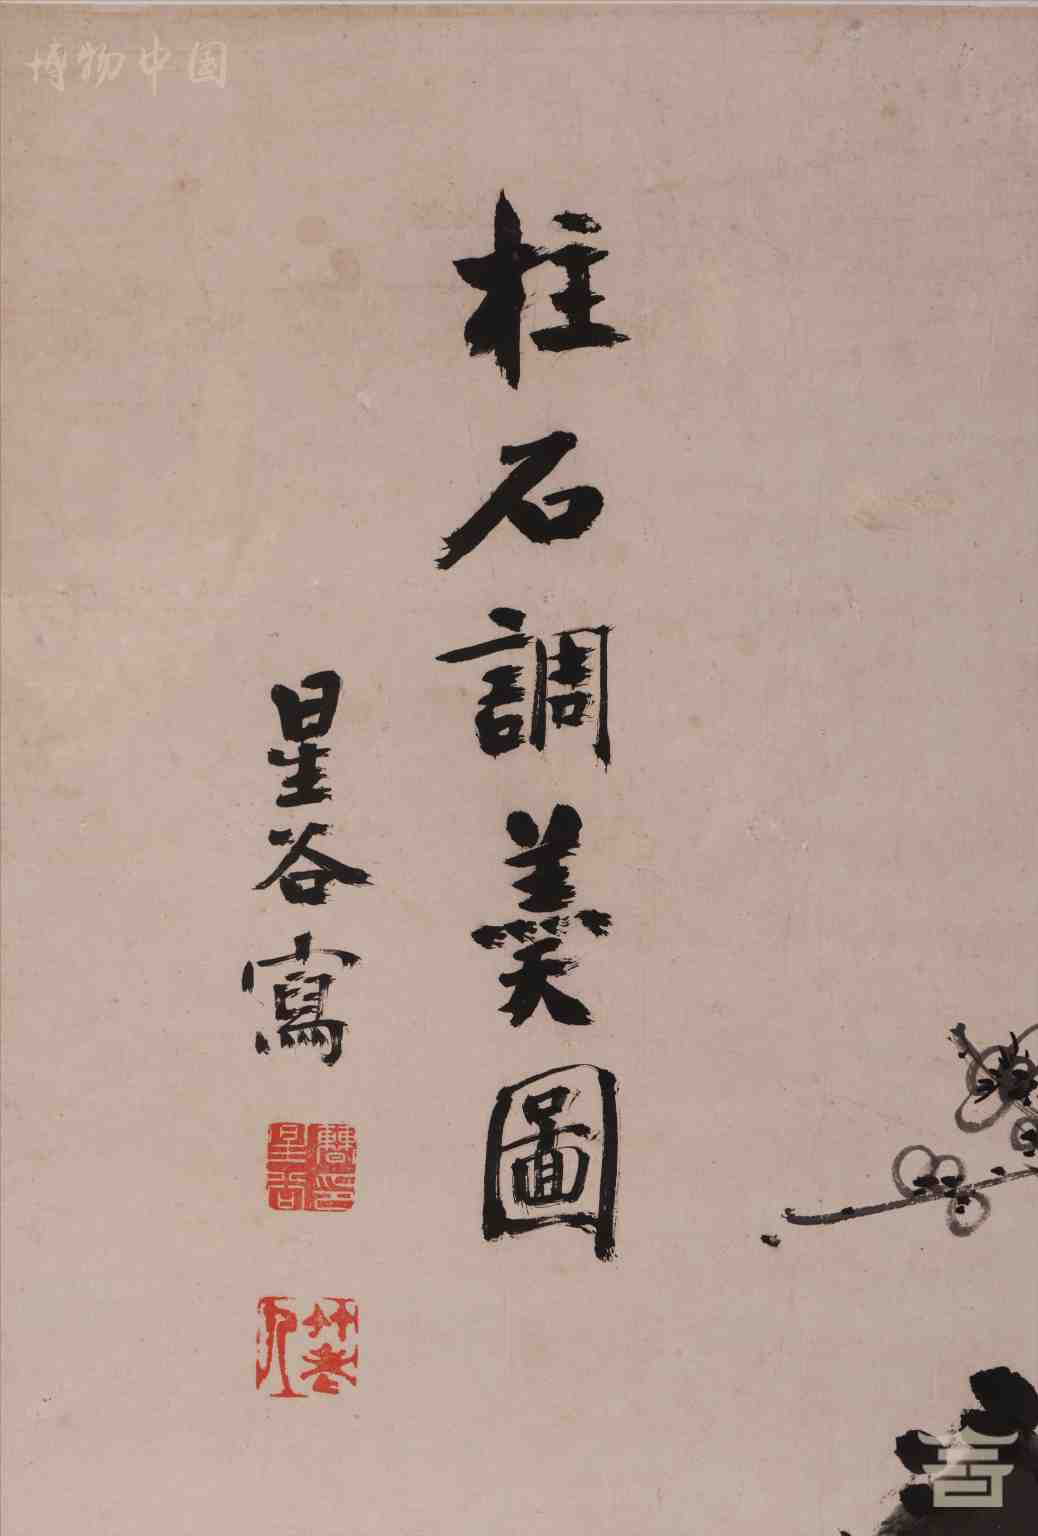 博物中国
柱石調羹圖
星谷寫